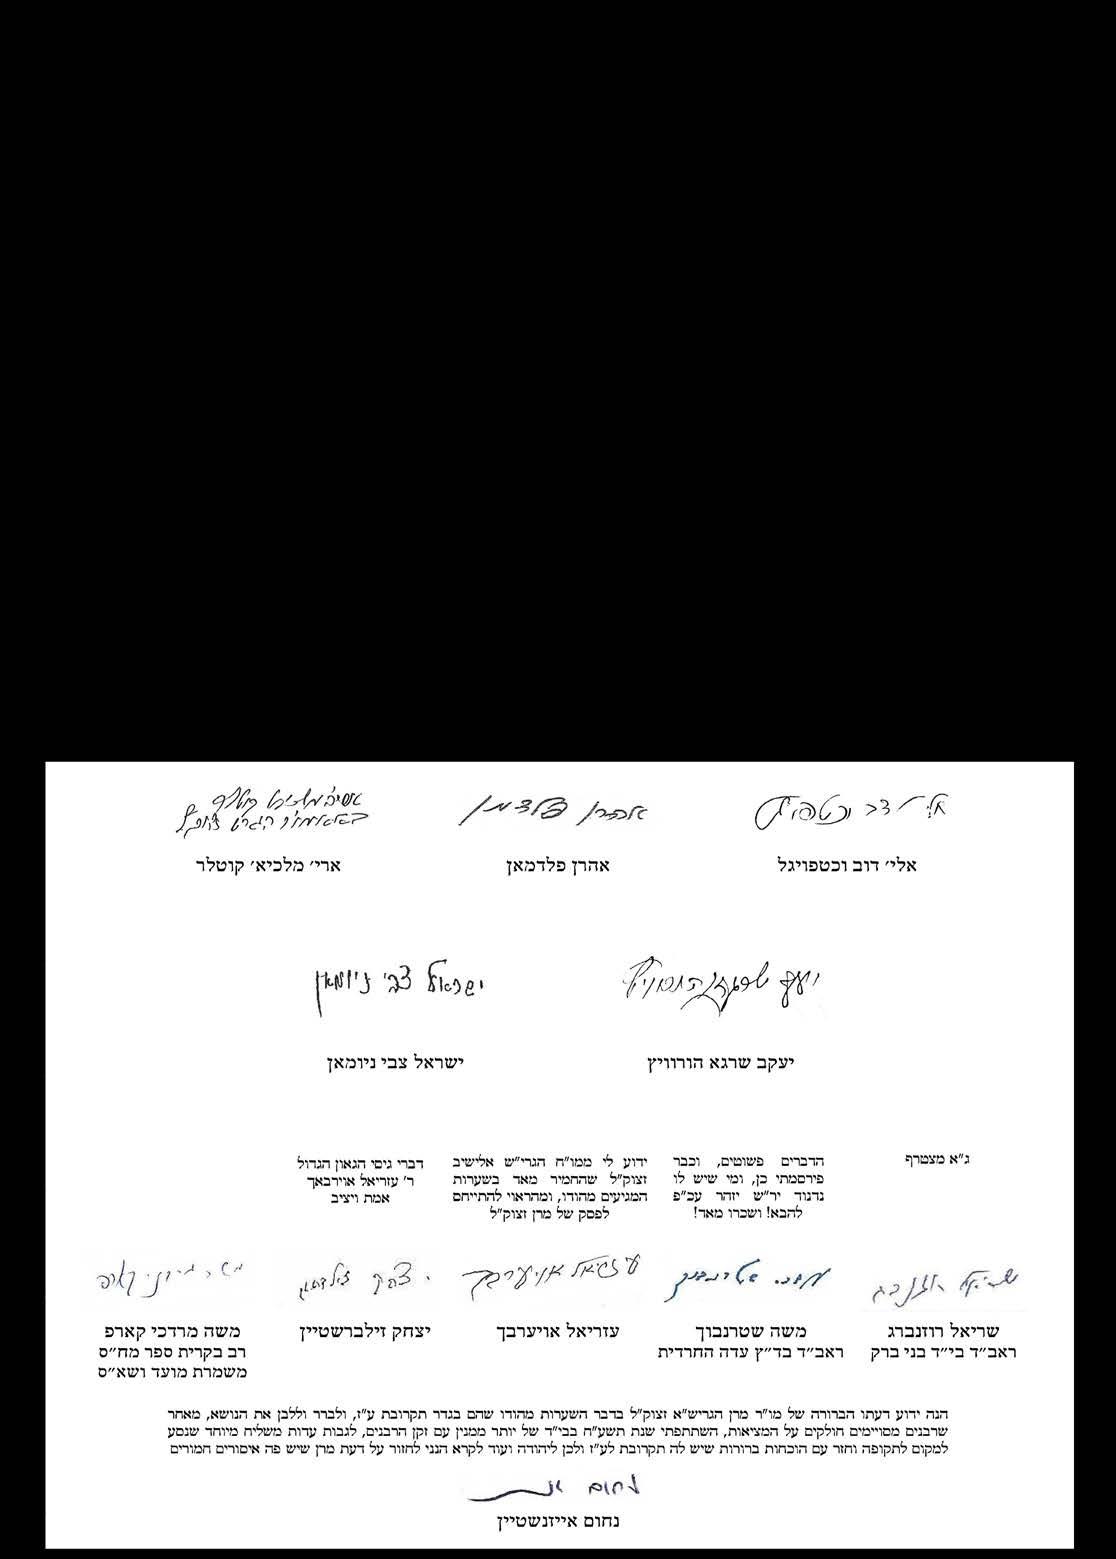 אלי׳ דוב וכטפויגל
אהרן פלדמן
אהרן פלדמאן
ארי׳ מלכיא׳ קוטלר
ישראל צבי ניומאן
יעקב שרגא הורוויץ
ישראל צבי ניומאן
ג״א מצטרף
הדברים פשוטים, וכבר
פירסמתי כן, ומי שיש לו
נדנוד יר״ש יזהר עכ״פ
להבא! ושכרו מאד!
ידוע לי ממו״ח הגרי״ש אלישיב
זצוק״ל שהחמיר מאד בשערות
המגיעים מהודו, ומהראוי להתייחס
לפסק של מרן זצוק״ל
דברי גיסי הגאון הגדול
ר׳ עזריאל אוירבאך
אמת ויציב
עזריאל אויערבך
שריאל רוזנברג
ראב״ד בי״ד בני ברק
משה שטרנבוך
ראב״ד בד״ץ עדה החרדית
עזריאל אויערבך
יצחק זילברשטיין
משה מרדכי קארפ
רב בקרית ספר מח״ס
משמרת מועד ושא״ס
הנה ידוע דעתו הברורה של מו״ר מרן הגריש״א זצוק״ל בדבר השערות מהודו שהם בגדר תקרובת ע״ז, ולברר וללבן את הנושא, מאחר
שרבנים מסויימים חולקים על המציאות, השתתפתי שנת תשע״ח בבי״ד של יותר ממנין עם זקן הרבנים, לגבות עדות משליח מיוחד שנסע
למקום לתקופה וחזר עם הוכחות ברורות שיש לה תקרובת לע״ז ולכן ליהודה ועוד לקרא הנני לחזור על דעת מרן שיש פה איסורים חמורים
נחום
נחום אייזנשטיין